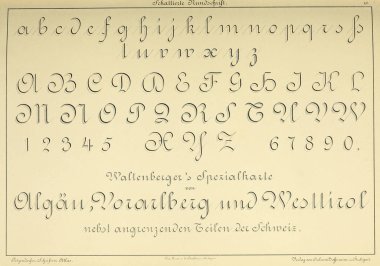 Schattierte Rundschrift.
a b c d e f g h i j k l m n o p q r s ß
t u v w x y z
A B C D E F G H I K L
M N O P Q R S T U V W
1 2 3 4 5 X Y Z 6 7 8 9 0.
Waltenberger's Spezialkarte
von
Algäu, Vorarlberg und Westtirol
nebst angrenzenden Teilen der Schweiz.